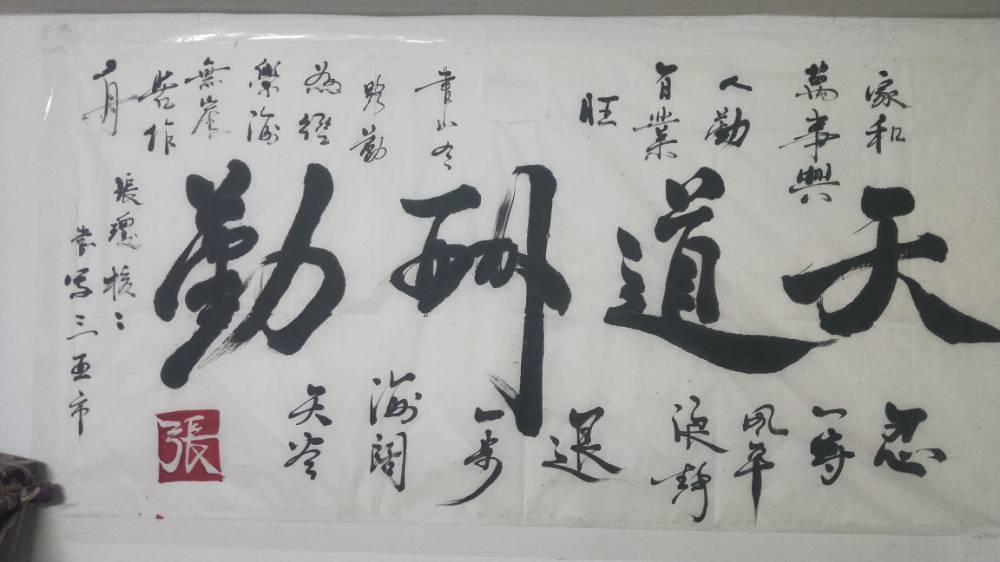 天道酬勤
家和
萬事興
人勤
百業
旺
書山有
路勤
為徑
學海
無崖
苦作
舟
忍
一時
風平
浪静
退
一步
海闊
天空
張瓊
写三亚市
張